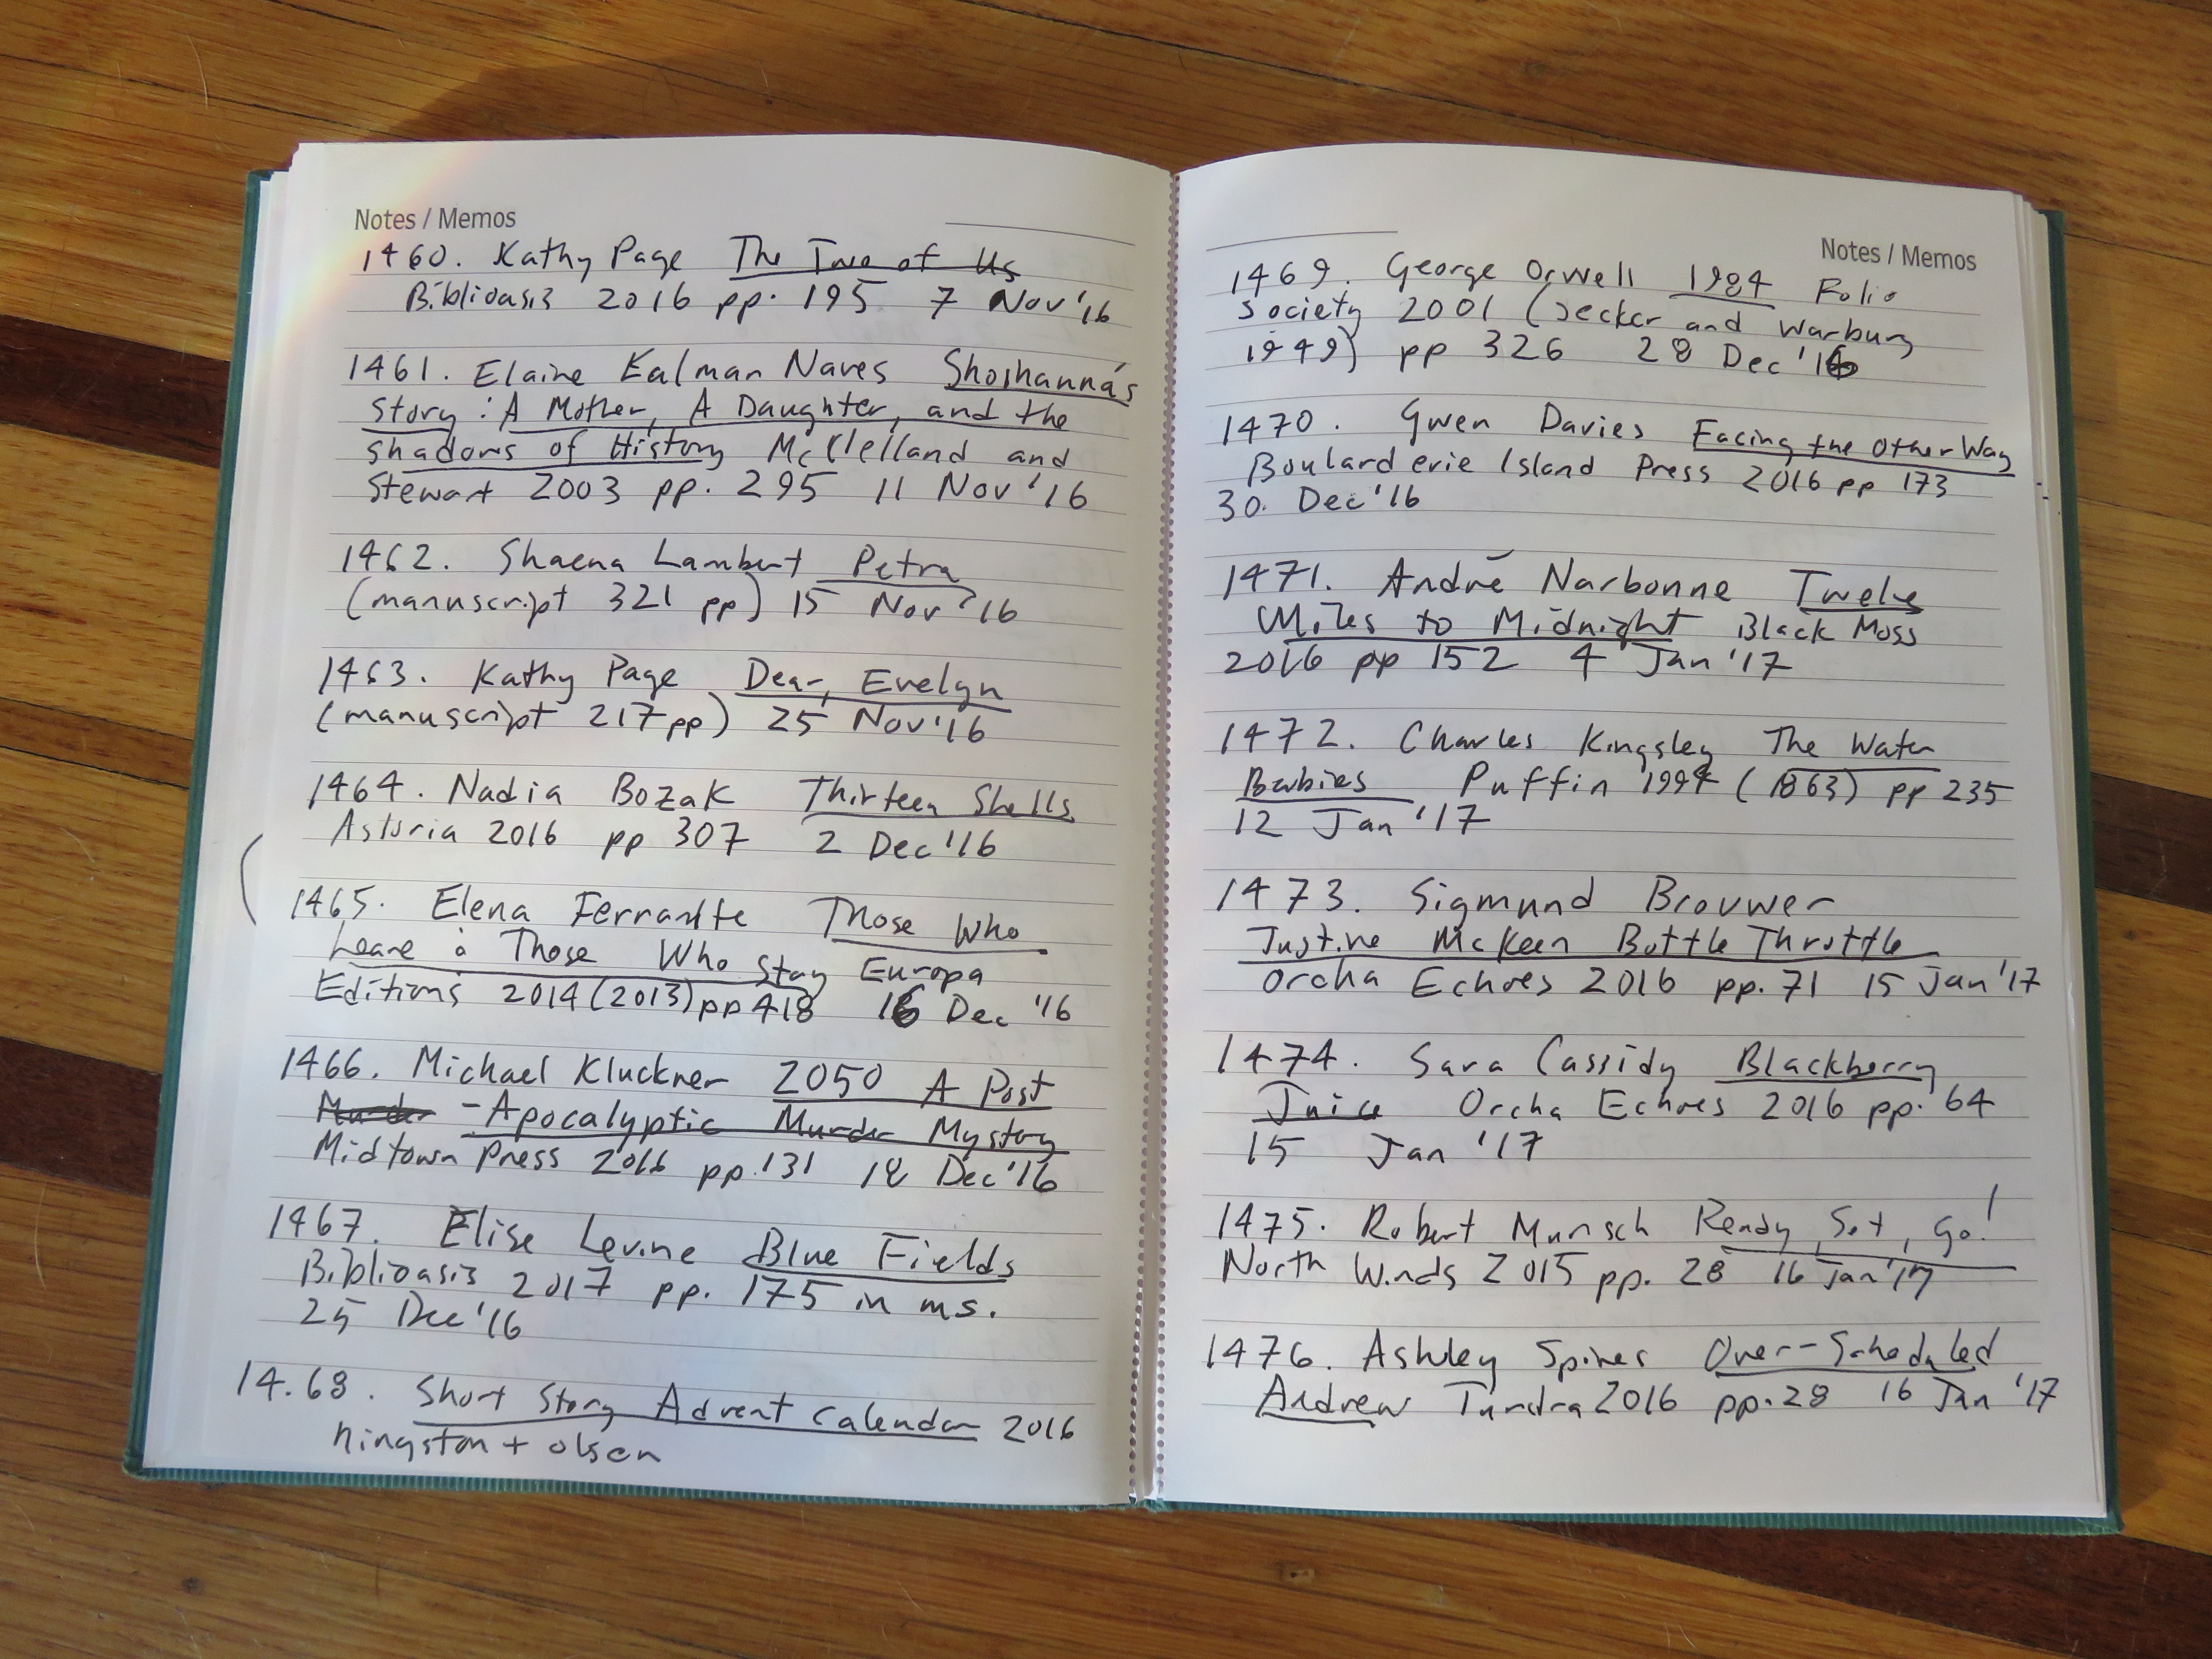 Notes / Memos
1460. Kathy Page The Two of Us
Biblioasis 2016 pp. 195 7 Nov '16
1461. Elaine Kalman Naves Shoshanna's
Story: A Mother, A Daughter, and the
Shadows of History McClelland and
Stewart 2003 pp. 295 11 Nov '16
1462. Shaena Lambert Petra
(manuscript 321 pp) 15 Nov '16
1463. Kathy Page Dear, Evelyn
(manuscript 217 pp) 25 Nov '16
1464. Nadia Bozak Thirteen Shells
Astoria 2016 pp 307 2 Dec '16
1465. Elena Ferrante Those Who
Leave & Those Who Stay Europa
Editions 2014 (2013) pp 418 16 Dec '16
1466. Michael Kluckner 2050 A Post
Murder - Apocalyptic Murder Mystery
Midtown Press 2016 pp. 131 18 Dec '16
1467. Elise Levine Blue Fields
Biblioasis 2017 pp. 175 in ms.
25 Dec '16
14.68. Short Story Advent Calendar 2016
Hingston + Olsen
Notes / Memos
1469. George Orwell 1984 Folio
Society 2001 (Secker and Warburg
1949) pp 326 28 Dec '16
1470. Gwen Davies Facing the Other Way
Boularderie Island Press 2016 pp 173
30. Dec '16
1471. André Narbonne Twelve
Miles to Midnight Black Moss
2016 pp 152 4 Jan '17
1472. Charles Kingsley The Water
Babies Puffin 1994 (1863) pp 235
12 Jan '17
1473. Sigmund Brouwer
Justine McKeen Bottle Throttle
Orcha Echoes 2016 pp. 71 15 Jan '17
1474. Sara Cassidy Blackberry
Juice Orcha Echoes 2016 pp. 64
15 Jan '17
1475. Robert Munsch Ready, Set, Go!
North Winds 2015 pp. 28 16 Jan '17
1476. Ashley Spires Over-Scheduled
Andrew Tundra 2016 pp. 28 16 Jan '17